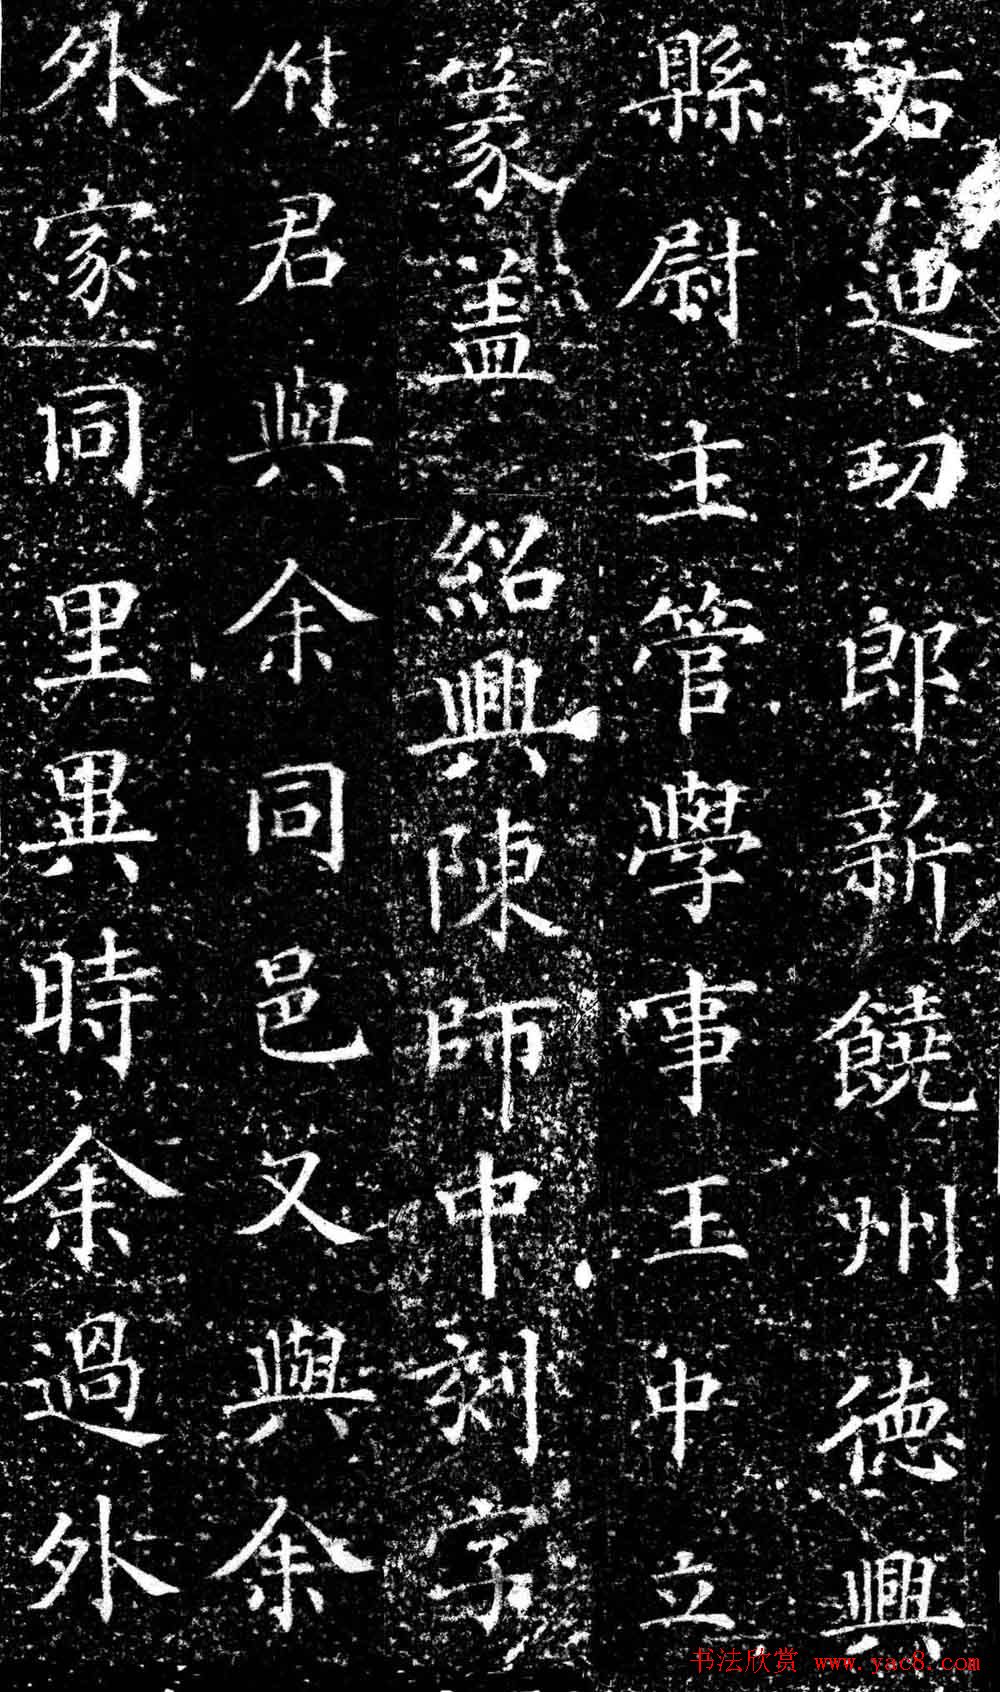 右迪功郎新饒州德興
縣尉主管學事王中立
篆蓋 紹興陳師中刻字
府君與余同邑又與余
外家同里異時余過外
书法欣赏 www.yac8.com